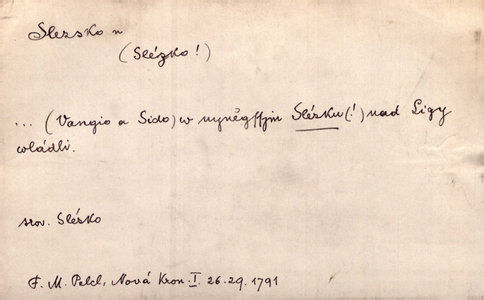 Slezsko n
(Slézko!)
... (Vangio a Sido) w nyněgssjm Slézku (!) nad Ligy
wládli.
srov. Slésko
F. M. Pelcl, Nová Kron. I. 26.29. 1791